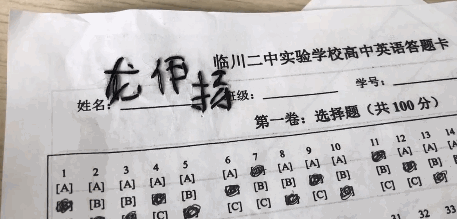 临川二中实验学校高中英语答题卡
姓名: 龙伊扬 班级: 学号:
第一卷：选择题（共100分）
1 2 3 4 5 6 7 8 9 10 11 12 13 14
[A] [A] [A] [A] [A] [A] [A] [A] [A] [A] [A]
[B] [B] [B] [B] [B] [B]
[C] [C] [C] [C] [C]
31 32 33